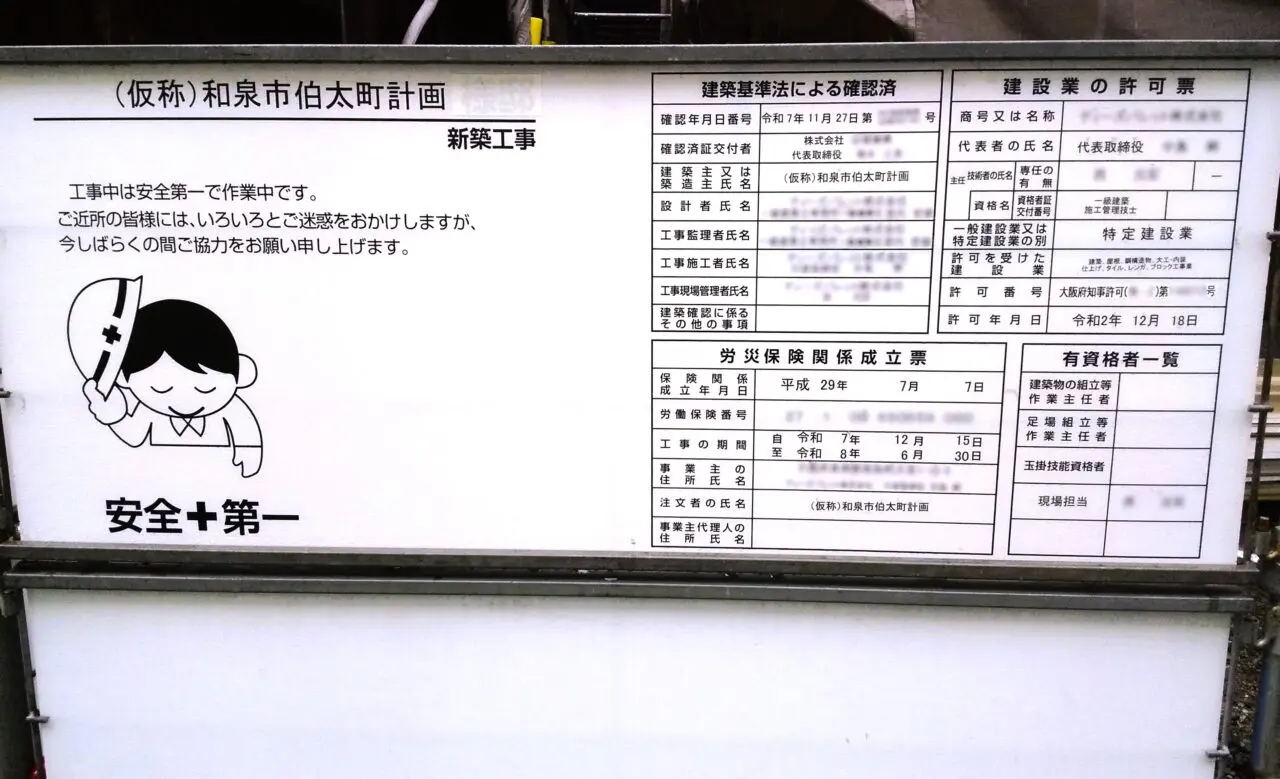 (仮称)和泉市伯太町計画
新築工事
工事中は安全第一で作業中です。
ご近所の皆様には、いろいろとご迷惑をおかけしますが、
今しばらくの間ご協力をお願い申し上げます。
安全+第一
建築基準法による確認済
確認年月日番号 令和7年11月27日第 号
確認済証交付者 株式会社
代表取締役
建築主又は
築造主氏名 (仮称)和泉市伯太町計画
設計者氏名
工事監理者氏名
工事施工者氏名
工事現場管理者氏名
建築確認に係る
その他の事項
建設業の許可票
商号又は名称
代表者の氏名 代表取締役
主任技術者の氏名 専任の有無 ―
資格名 資格者証交付番号 一級建築
施工管理技士
一般建設業又は
特定建設業の別 特定建設業
許可を受けた
建設業 建築、屋根、鋼構造物、大工・内装
仕上げ、タイル、レンガ、ブロック工事業
許可番号 大阪府知事許可( )第 号
許可年月日 令和2年 12月 18日
労災保険関係成立票
保険関係
成立年月日 平成 29年 7月 7日
労働保険番号
工事の期間 自 令和 7年 12月 15日
至 令和 8年 6月 30日
事業主の
住所氏名
注文者の氏名 (仮称)和泉市伯太町計画
事業主代理人の
住所氏名
有資格者一覧
建築物の組立等
作業主任者
足場組立等
作業主任者
玉掛技能資格者
現場担当